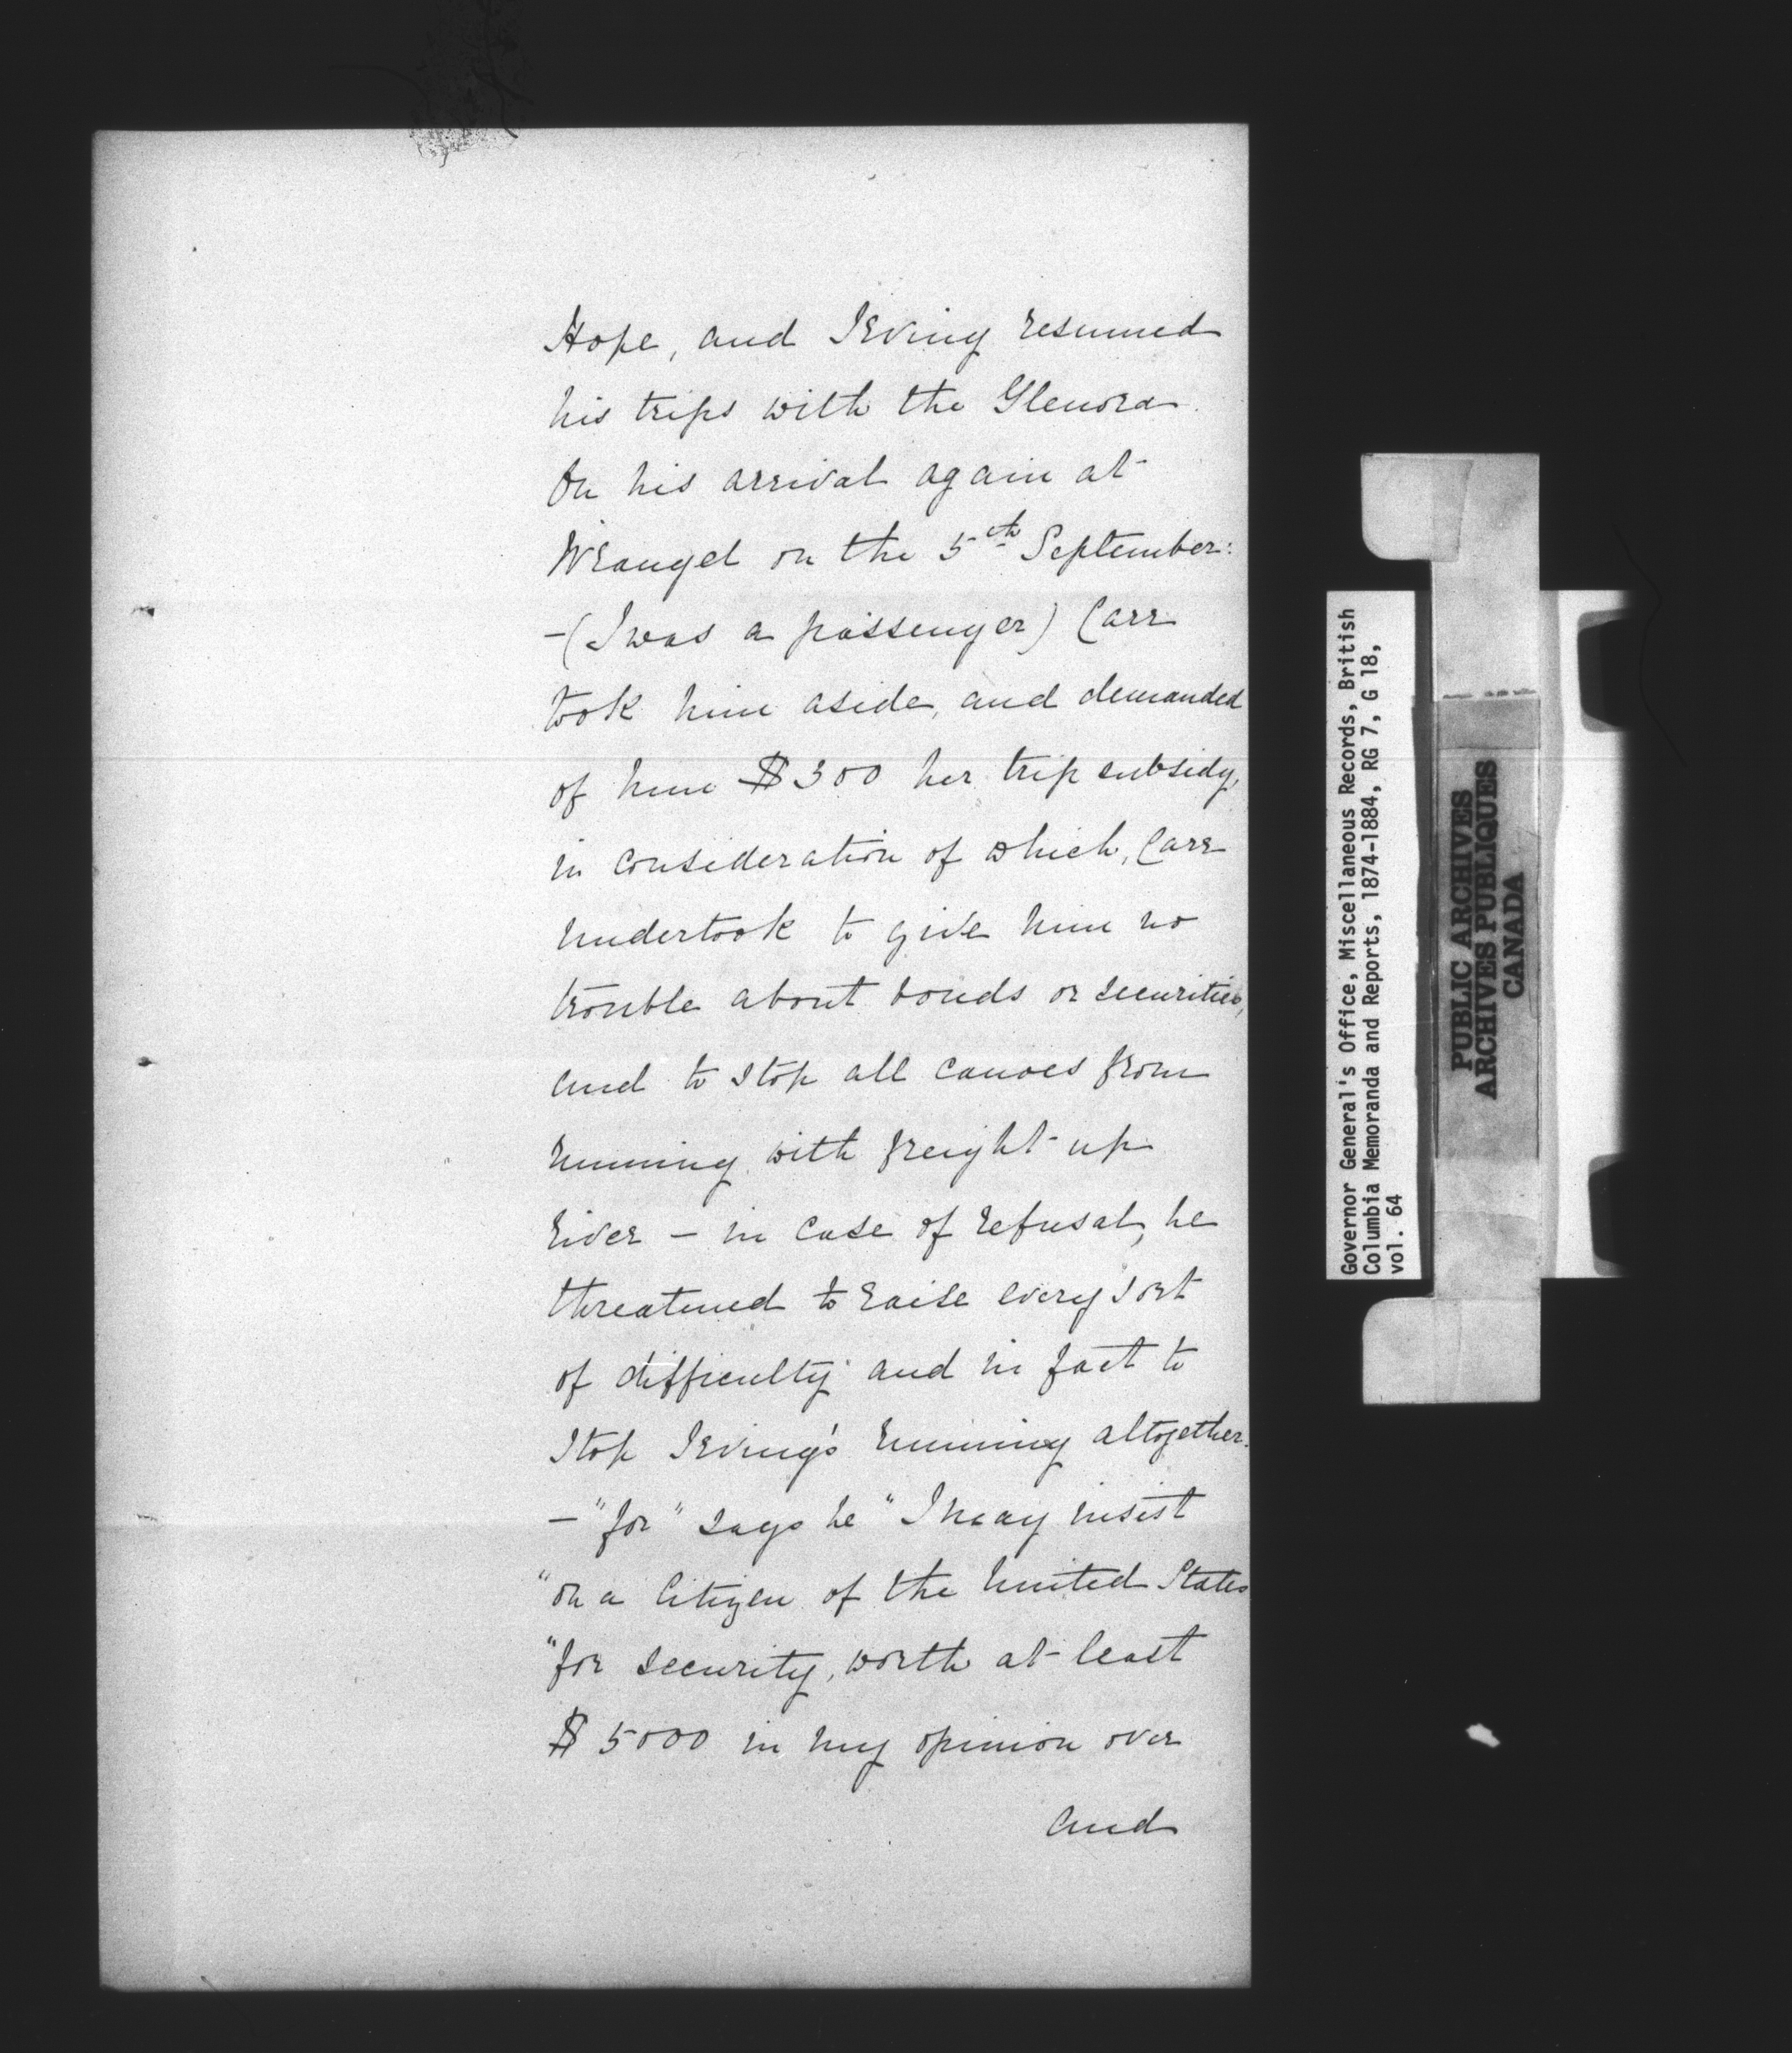 Hope, and Irving resumed
his trips with the Glenora.
On his arrival again at
Wrangel on the 5th September:
-(I was a passenger) Carr
took him aside, and demanded
of him $300 her trip subsidy,
in consideration of which, Carr
undertook to give him no
trouble about bonds or securities,
and to stop all canoes from
running with freight up
river - in case of refusal, he
threatened to raise every sort
of difficulty and in fact to
stop Irving's running altogether.
- "for" says he "I may insist
"on a Citizen of the United States
"for security, worth at least
$5000 in my opinion over
and
Governor General's Office, Miscellaneous Records, British
Columbia Memoranda and Reports, 1874-1884, RG 7, G 18,
vol. 64
PUBLIC ARCHIVES
ARCHIVES PUBLIQUES
CANADA